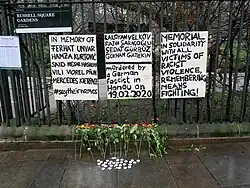 RUSSELL SQUARE
GARDENS
IN MEMORY OF
FERHAT UNVAR
HAMZA KURTOVIĆ
SAID NESAR HASHEMI
VILI VIOREL PĂUN
MERCEDES KIERPACZ
#saytheirnames
KALOYAN VELKOV
FATIH SARAÇOĞLU
SEDAT GÜRBÜZ
GÖKHAN GÜLTEKIN
Murdered by
a German
Fascist in
Hanau on
19.02.2020
MEMORIAL
IN SOLIDARITY
WITH ALL
VICTIMS OF
RACIST
VIOLENCE,
REMEMBERING
MEANS
FIGHTING!